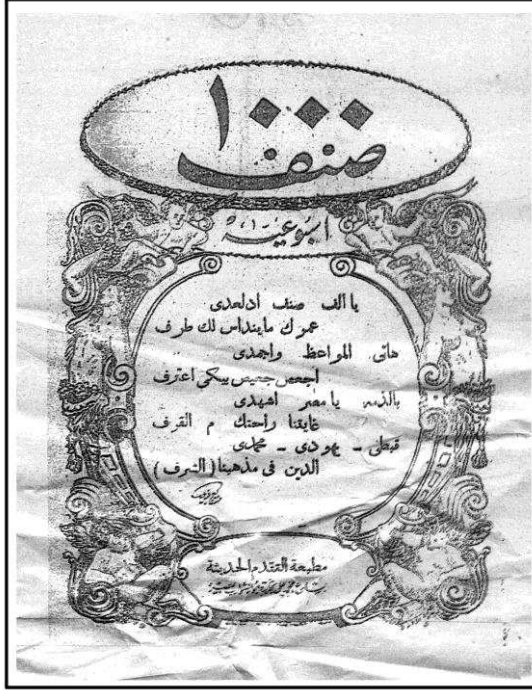 ١٠٠٠
صنف
اسبوعية
يا الف صنف ادلعدى
عمرك ماينداس لك طرف
هاتى المواعظ واجمدى
اجعص جعيص يبكى اعترف
بالذمه يا مصر اشهدى
غايتنا راحتك م القرف
قبطى - يهودى - محمدى
الدين فى مذهبنا (الشرف)
مطبعة التقدم الحديثة